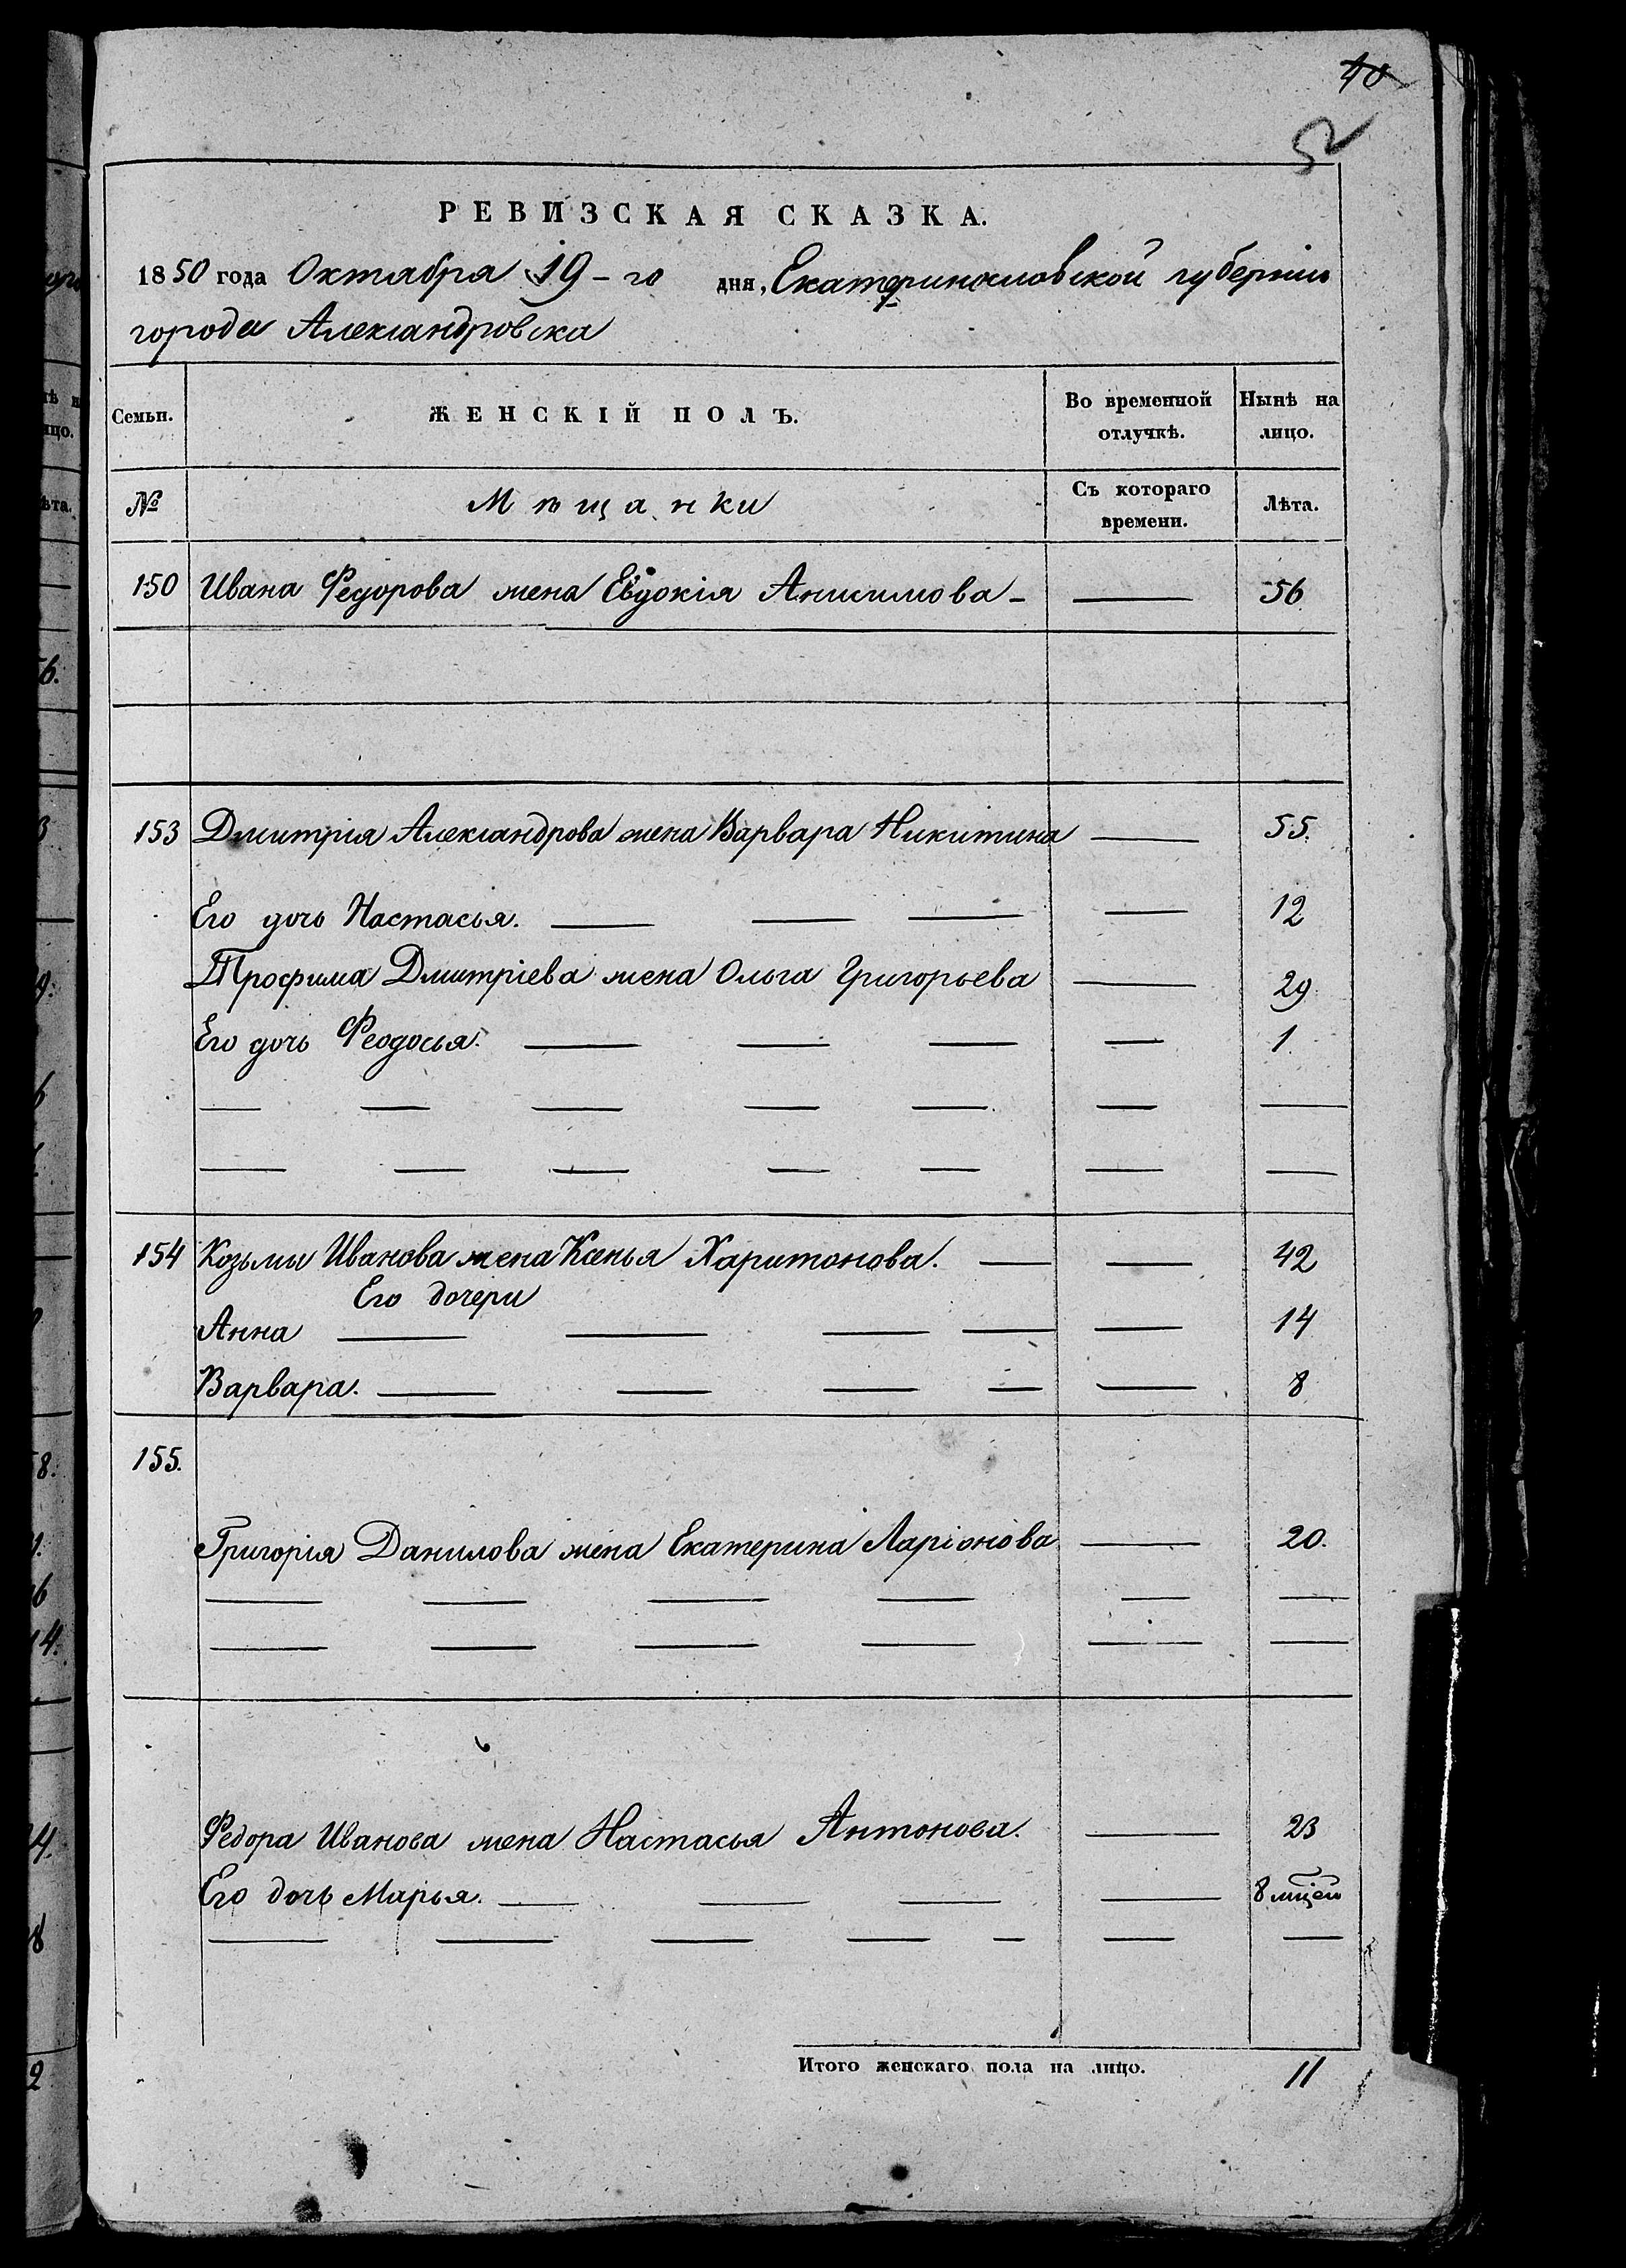 40
52
РЕВИЗСКАЯ СКАЗКА.
1850 года Октября 19-го дня, Екатеринославской губернiи
города Александровска
Семьи. ЖЕНСКІЙ ПОЛЪ. Во временной отлучкѣ. Нынѣ на лицо.
№ Мѣщанки Съ котораго времени. Лѣта.
150 Ивана Федорова жена Евдокія Анисимова - — 56
153 Дмитрія Александрова жена Варвара Никитина — 55.
Его дочь Настасья. — — — — 12
Трофима Дмитріева жена Ольга Григорьева — 29
Его дочь Феодосья. — — — — 1.
— — — — — — —
— — — — — — —
154 Козьмы Иванова жена Ксенья Харитонова. — — 42
Его дочери
Анна — — — — — 14
Варвара. — — — — — 8
155.
Григорія Данилова жена Екатерина Ларіонова — 20.
— — — — — —
— — — — — —
Федора Иванова жена Настасья Антонова. — 23
Его дочь Марья. — — — — 8 мцей
— — — — — — —
Итого женскаго пола на лицо. 11